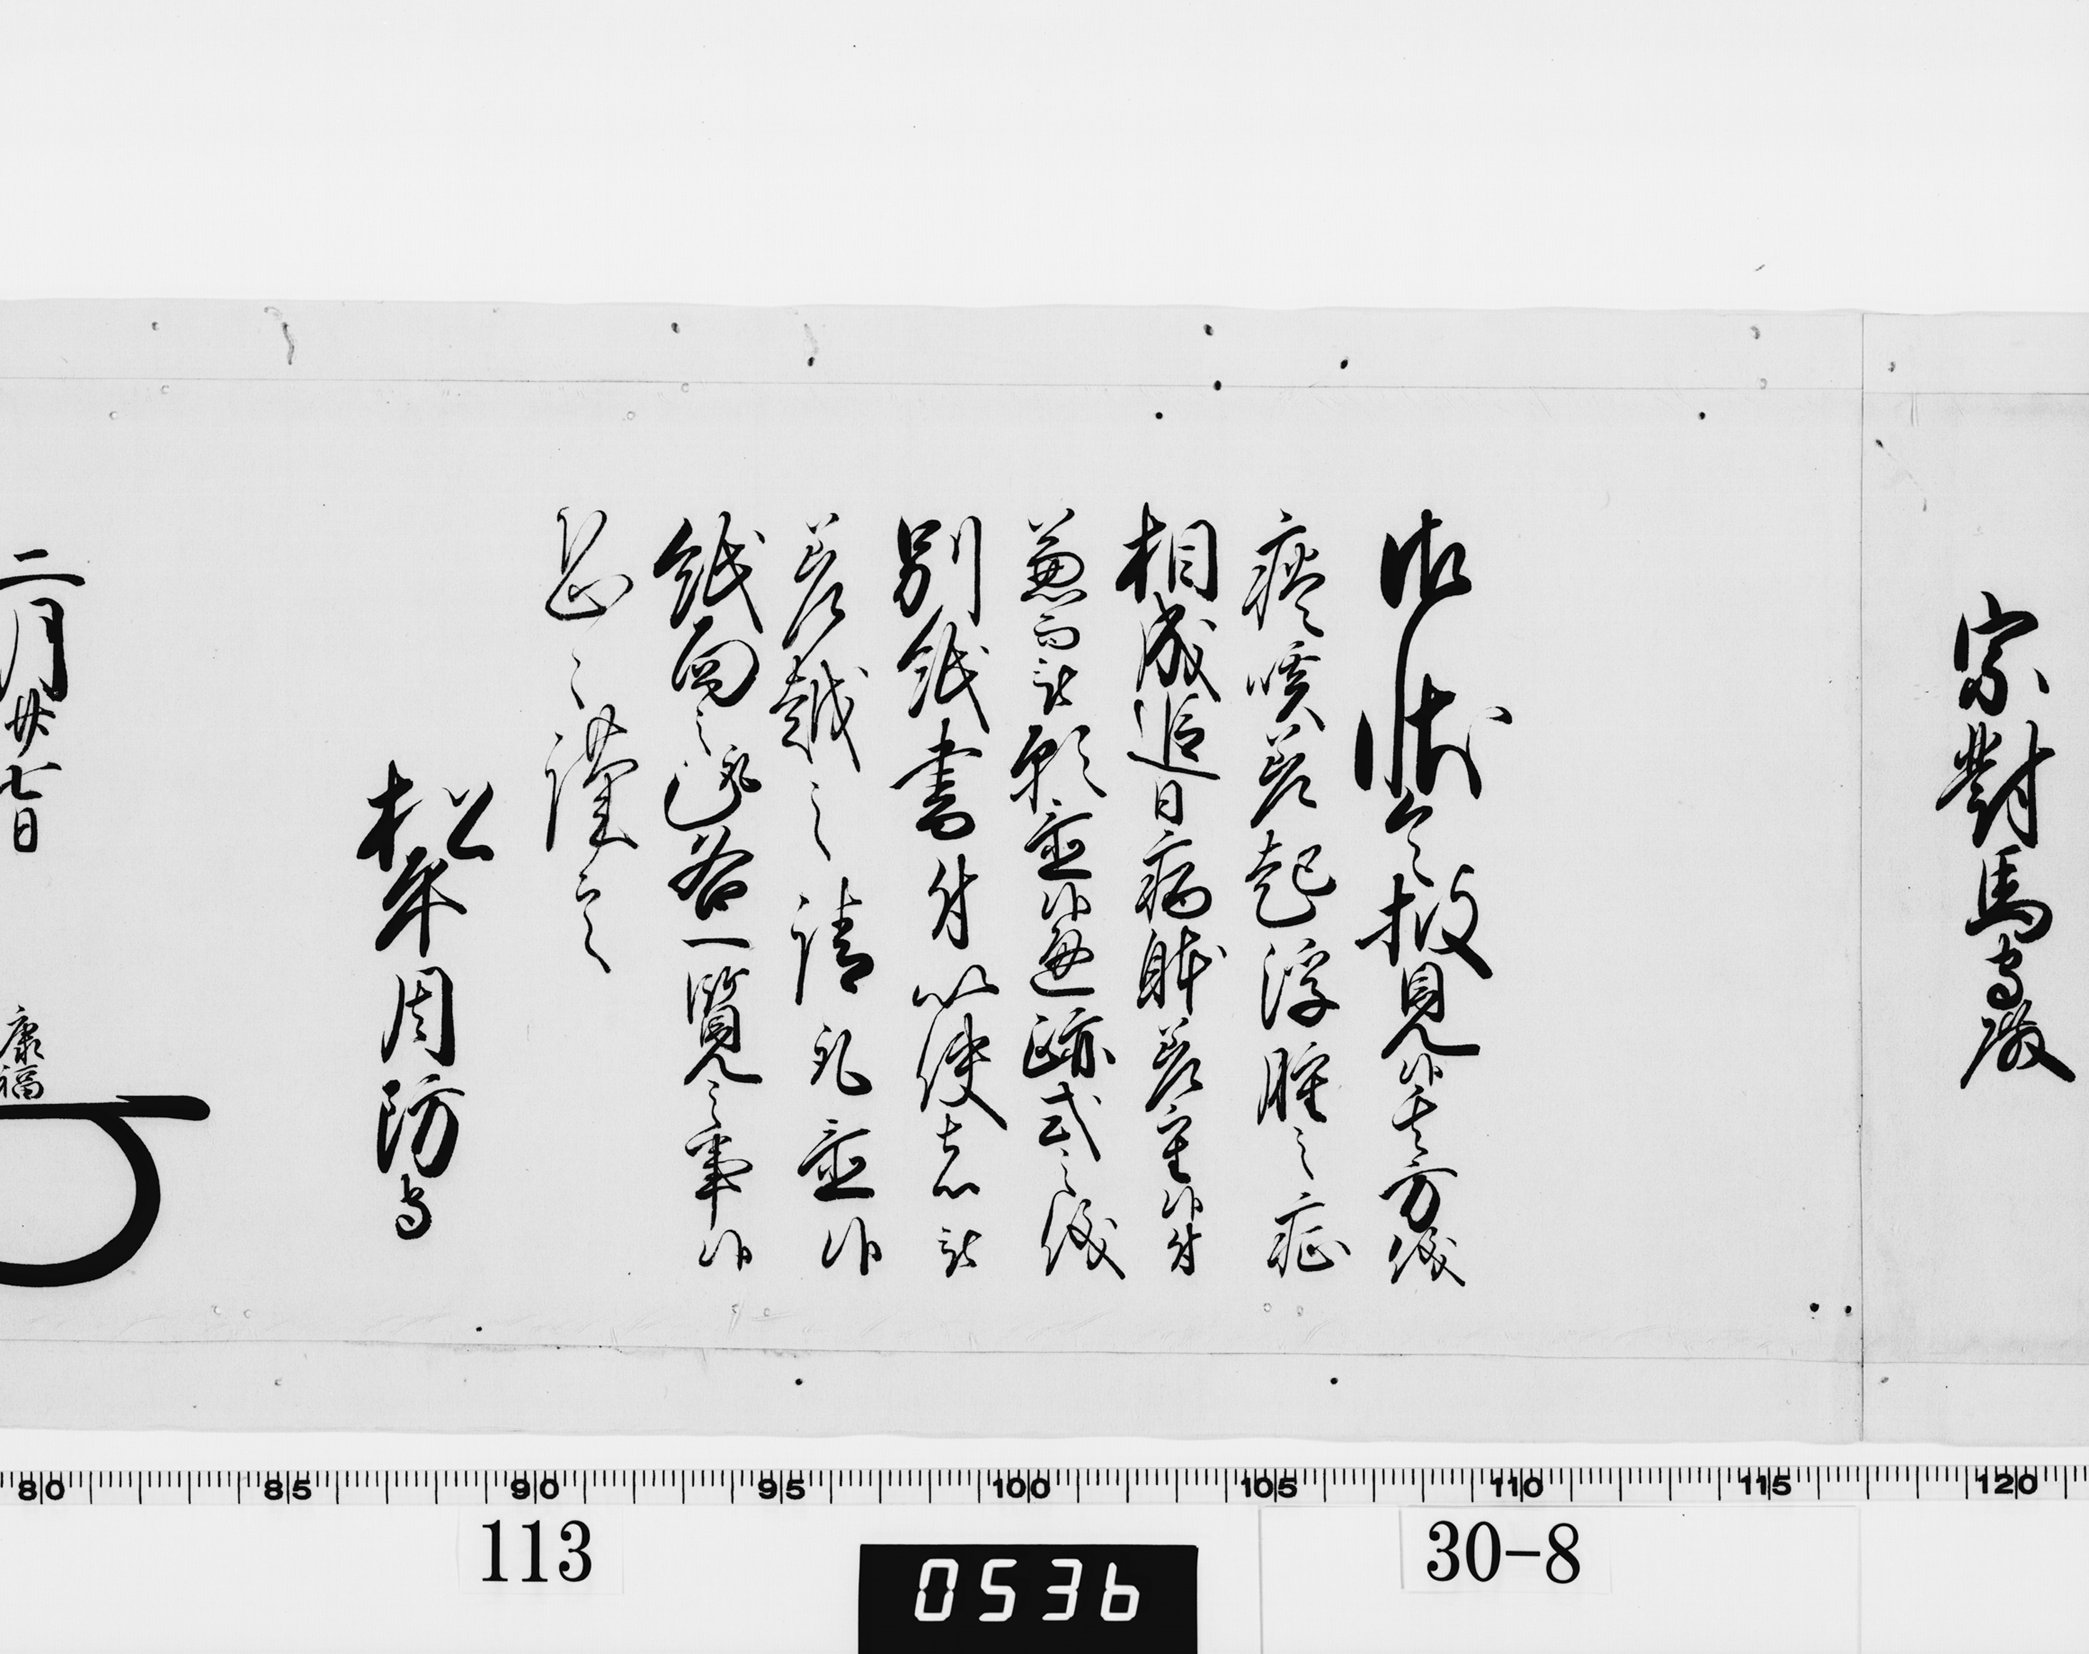 宗對馬守殿
御状令披見候其方儀
痰咳差起浮腫之症
相成追日病躰差重候付
兼而被願置候遺跡式之儀
別紙書付以使者被
差越之請取置候
紙面之趣各一覧之事候
恐々謹言
松平周防守
二月廿七日
康福
80 85 90 95 100 105 110 115 120
113
0536
30-8